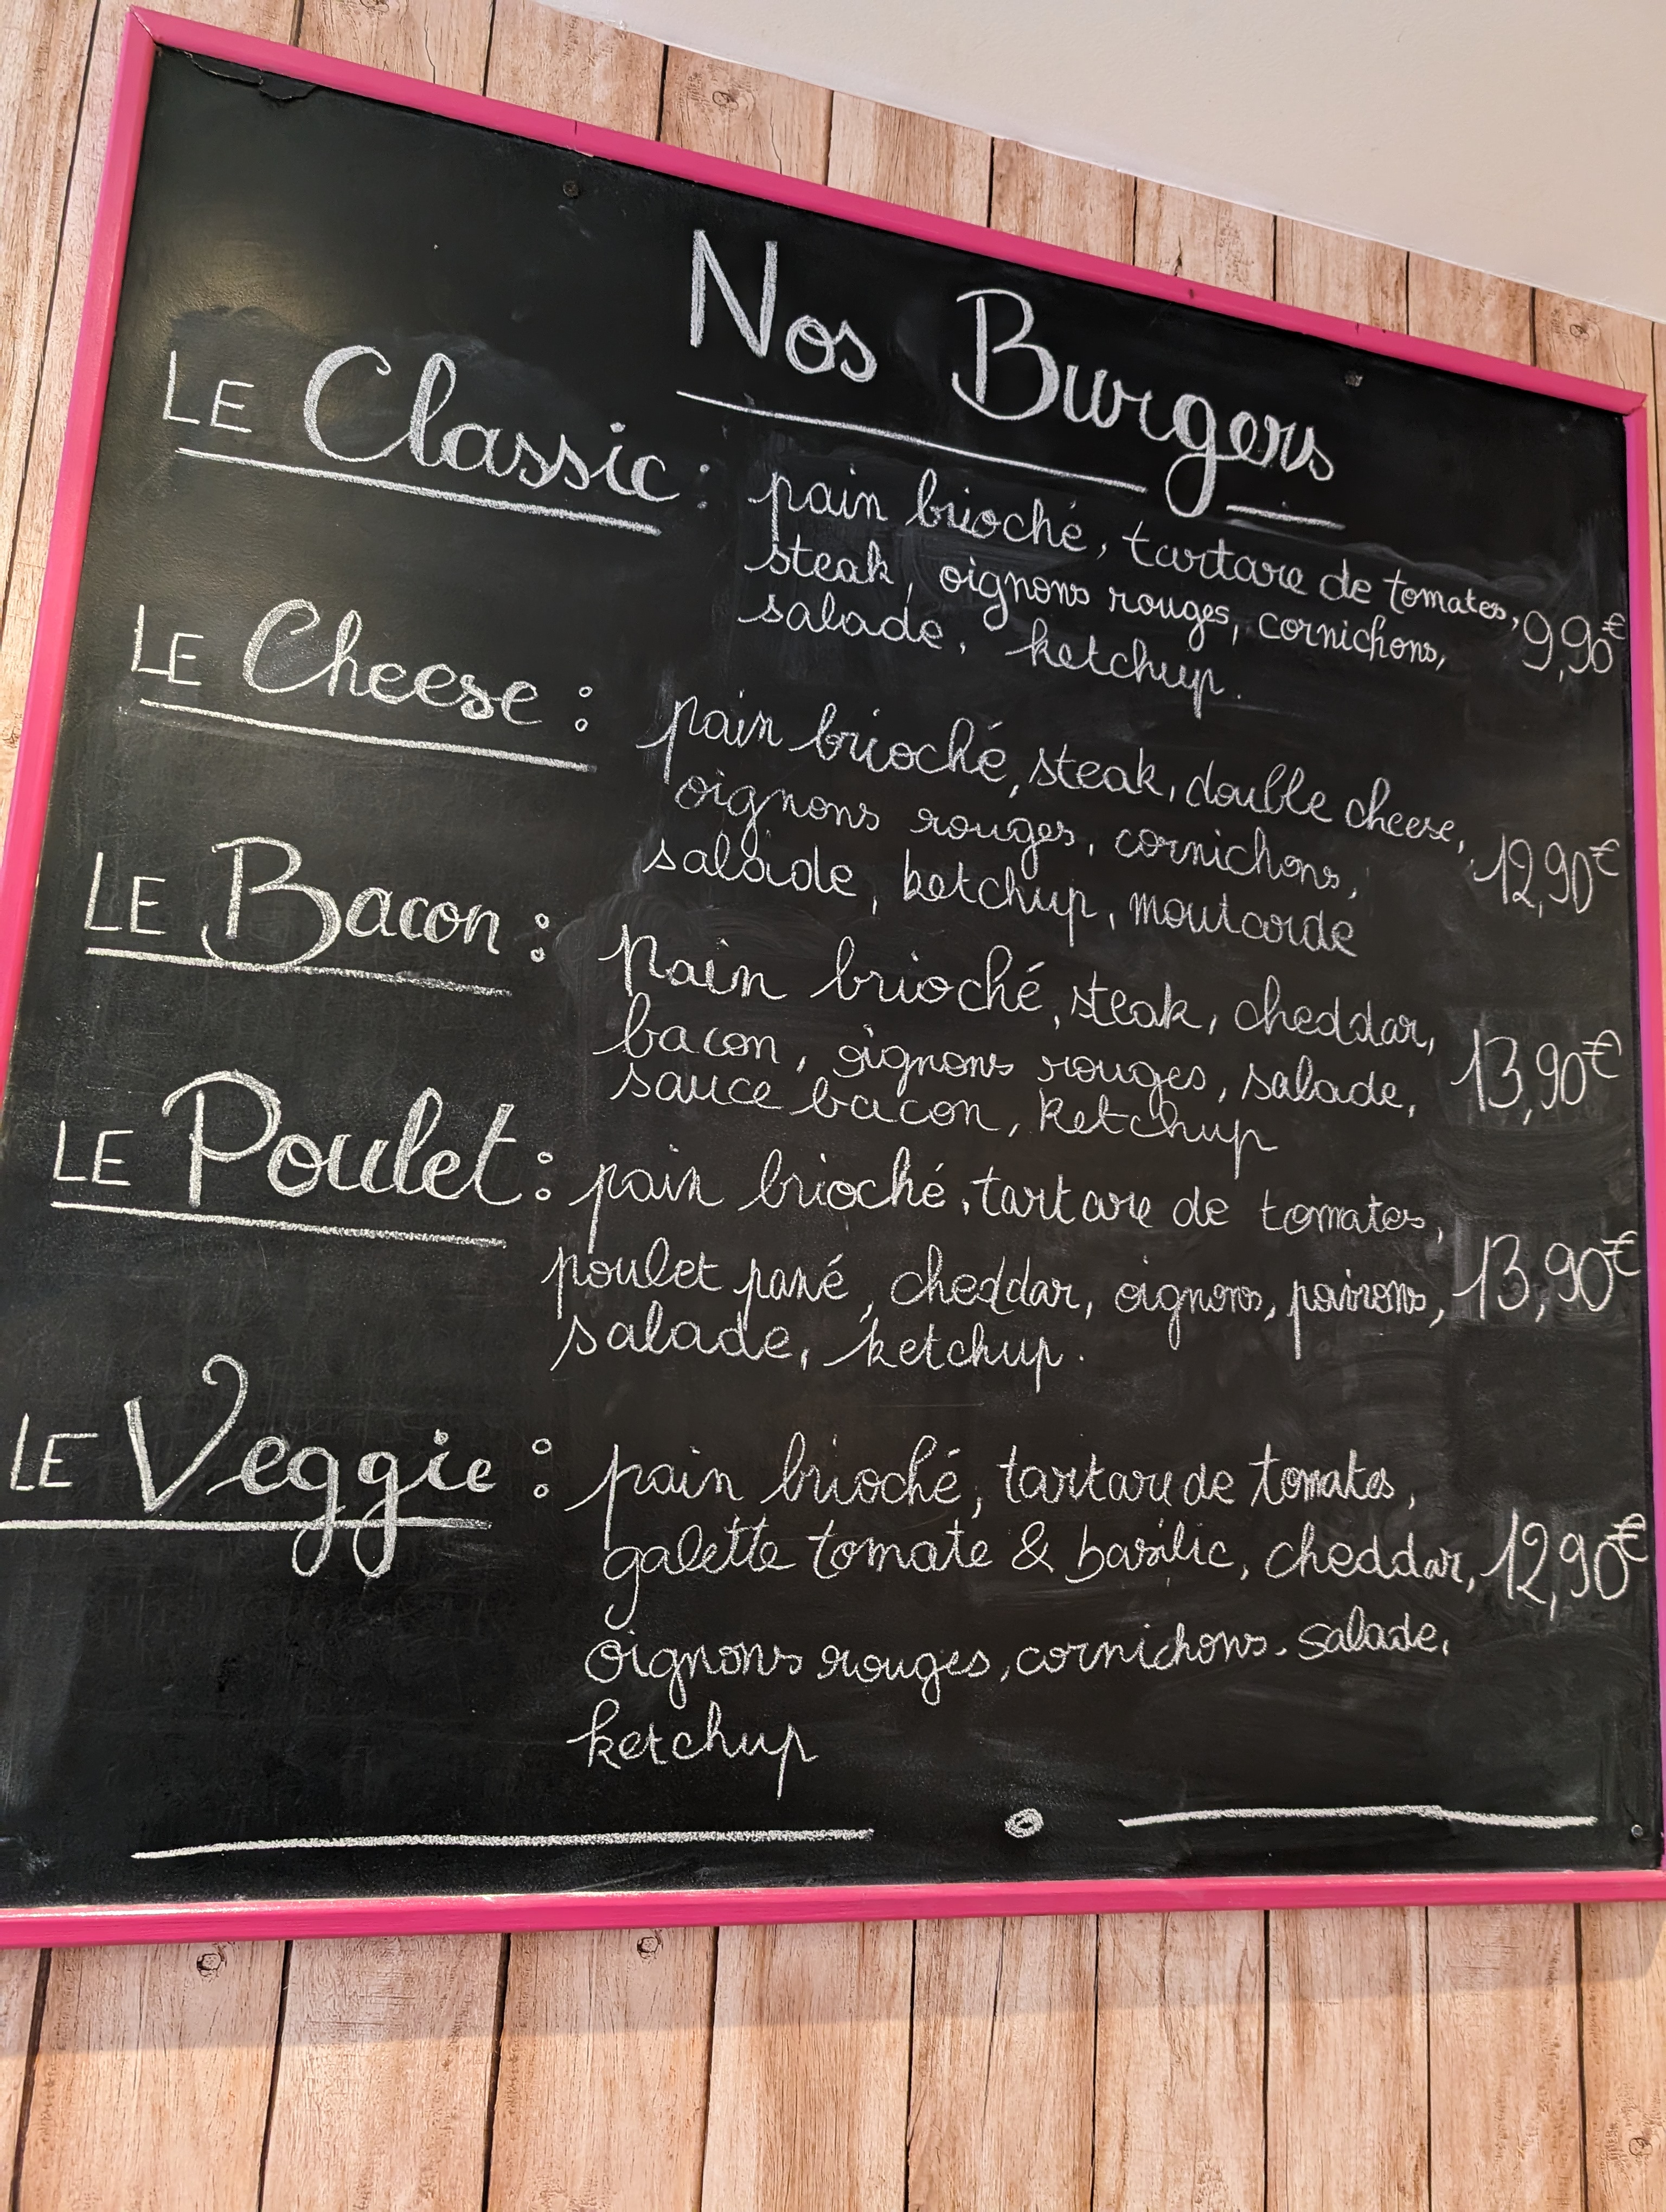 Nos Burgers
LE Classic : pain brioché, tartare de tomates,
steak, oignons rouges, cornichons, 9,90€
salade, ketchup.
LE Cheese : pain brioché, steak, double cheese,
oignons rouges, cornichons, 12,90€
salade, ketchup, moutarde
LE Bacon : pain brioché, steak, cheddar,
bacon, oignons rouges, salade, 13,90€
sauce bacon, ketchup
LE Poulet : pain brioché, tartare de tomates,
poulet pané, cheddar, oignons, poivrons, 13,90€
salade, ketchup.
LE Veggie : pain brioché, tartare de tomates,
galette tomate & basilic, cheddar, 12,90€
oignons rouges, cornichons. salade,
ketchup